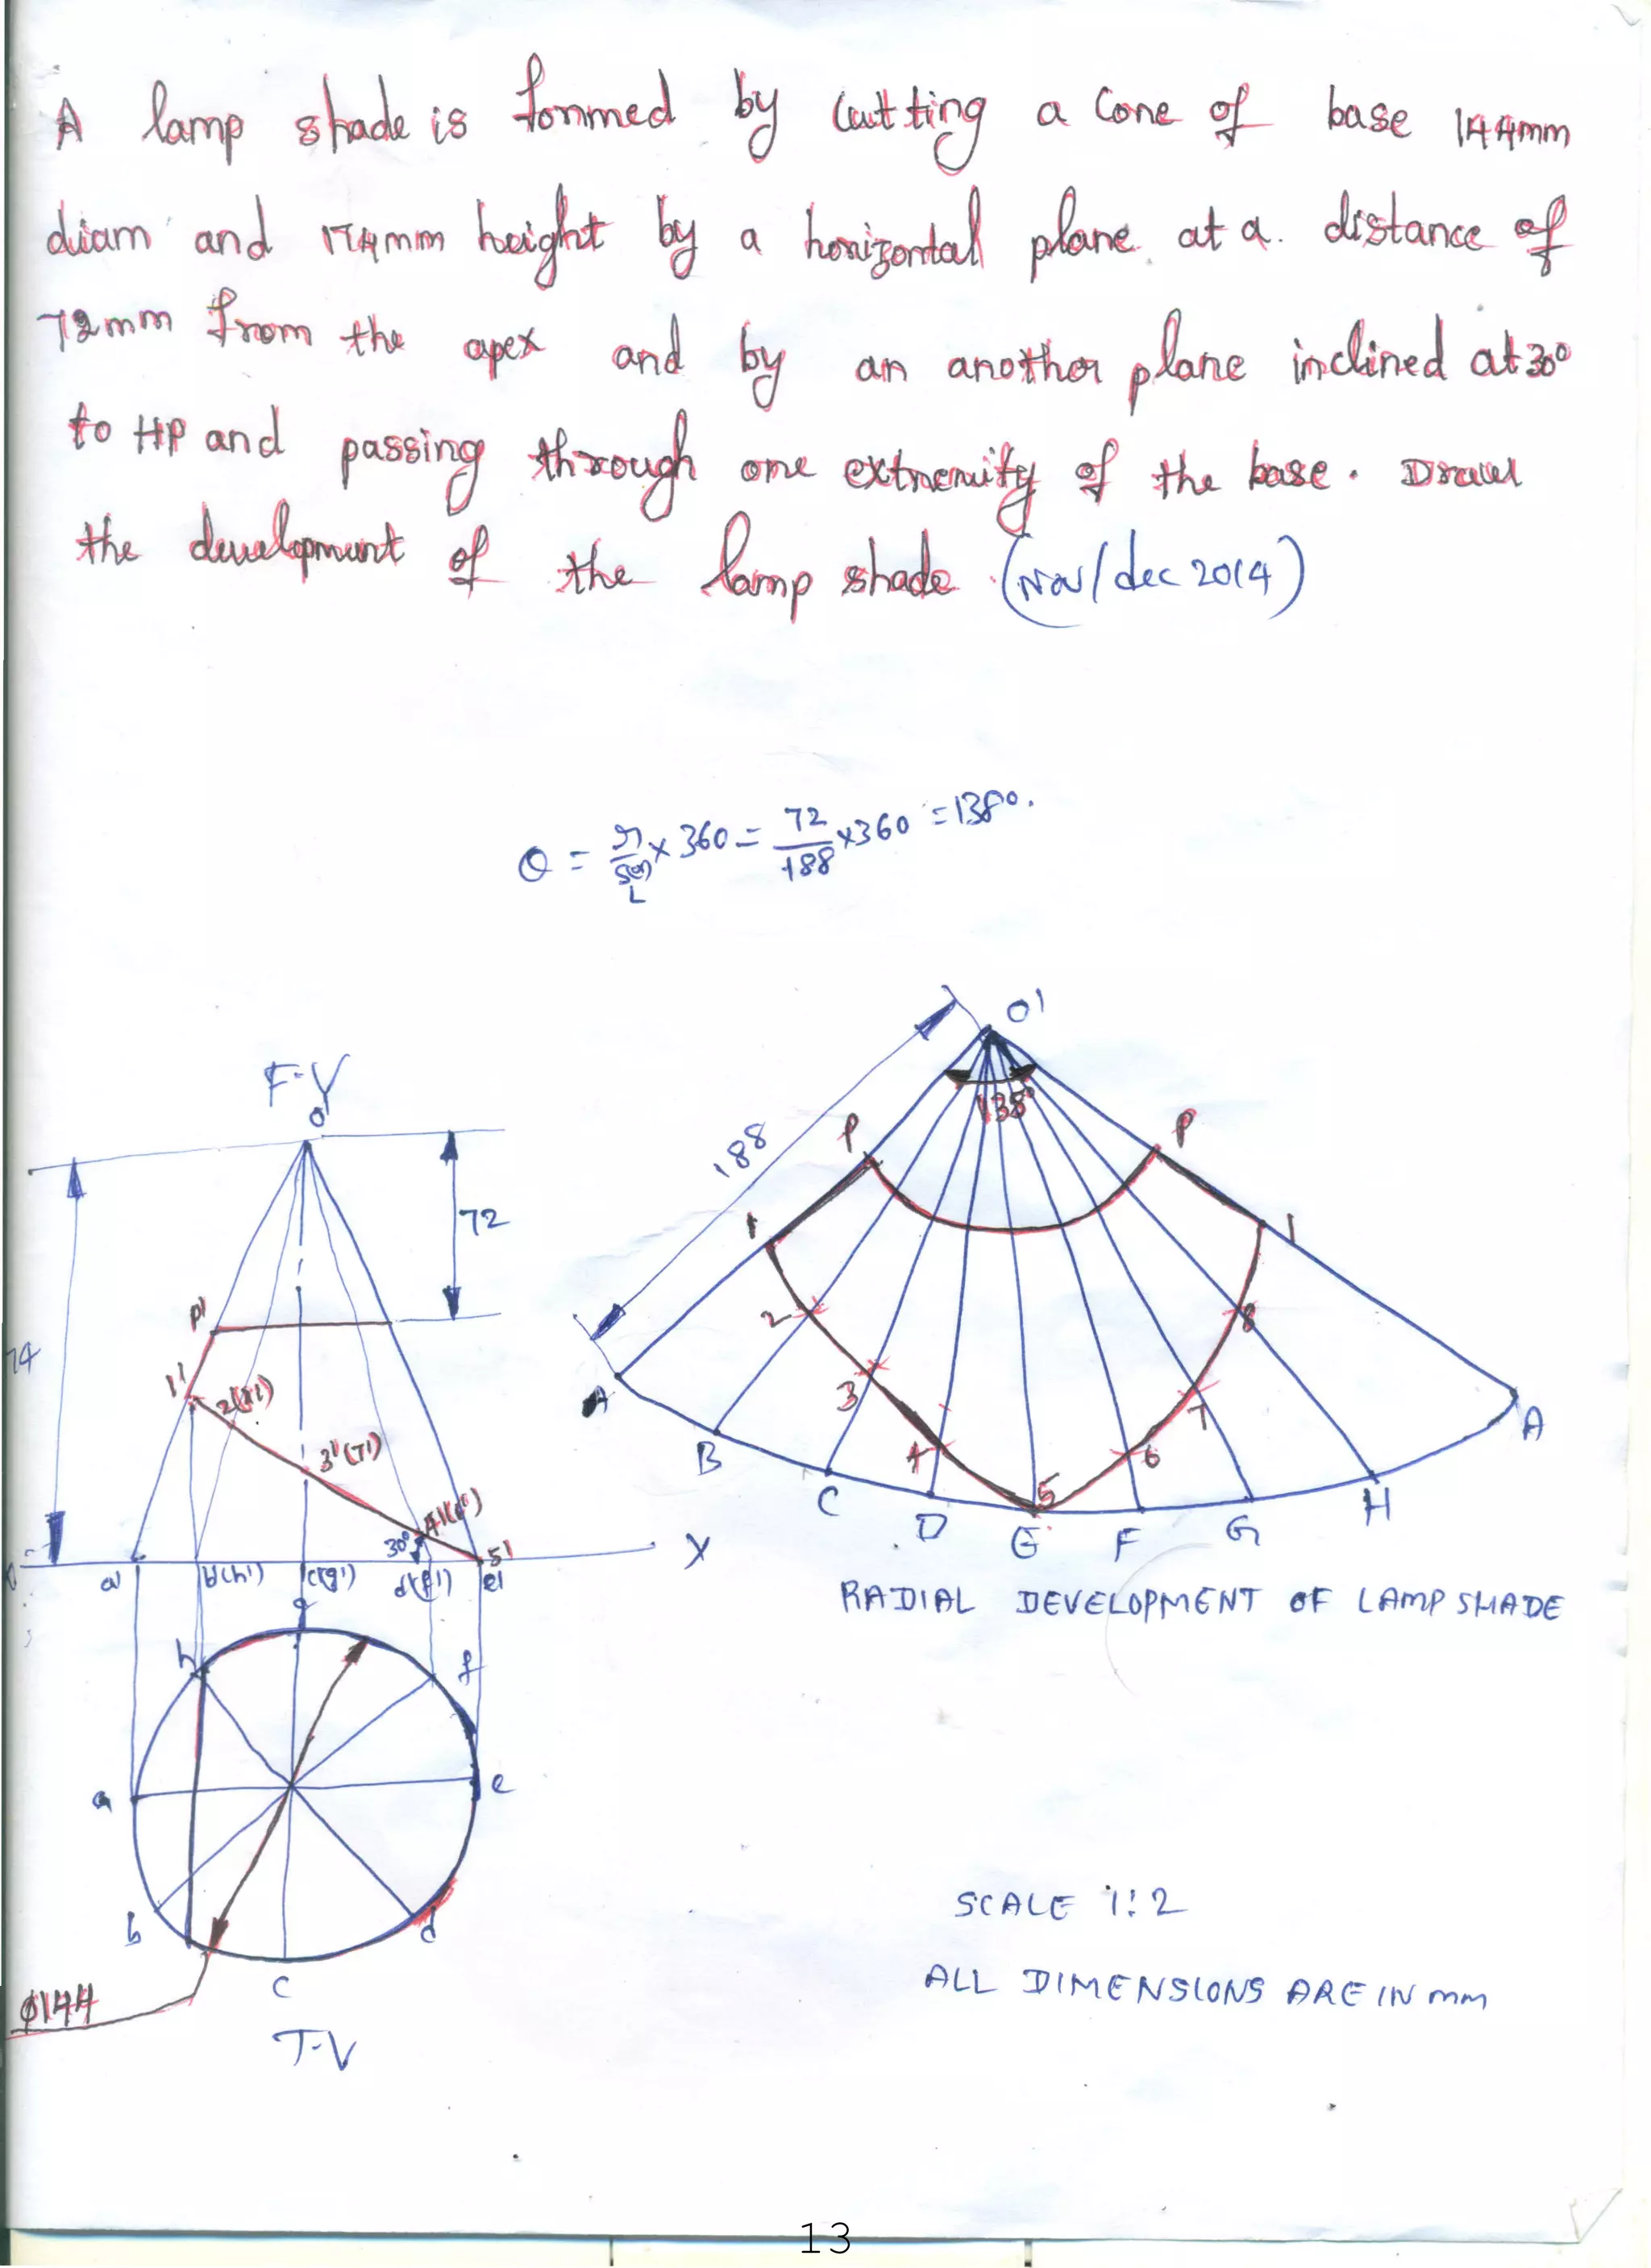 A lamp shade is formed by cutting a cone of base 144mm
diam and 174mm height by a horizontal plane at a distance of
72mm from the apex and by an another plane inclined at 30°
to HP and passing through one extremity of the base. Draw
the development of the lamp shade (Nov/dec 2014)
θ = r/S(or)L × 360 = 72/188 × 360 = 138°.
O'
F-V
o'
138°
188
P
P
72
P'
1
1
74
1'
2'(8')
2
8
3'(7')
3
7
A
A
4'(6')
4
6
5
30°
5'
B
H
X
a'
b'(h')
c'(g')
d'(f')
e'
C
D
E
F
G
g
RADIAL DEVELOPMENT OF LAMP SHADE
h
f
a
e
b
d
SCALE 1:2
c
ALL DIMENSIONS ARE IN mm
φ144
T-V
13